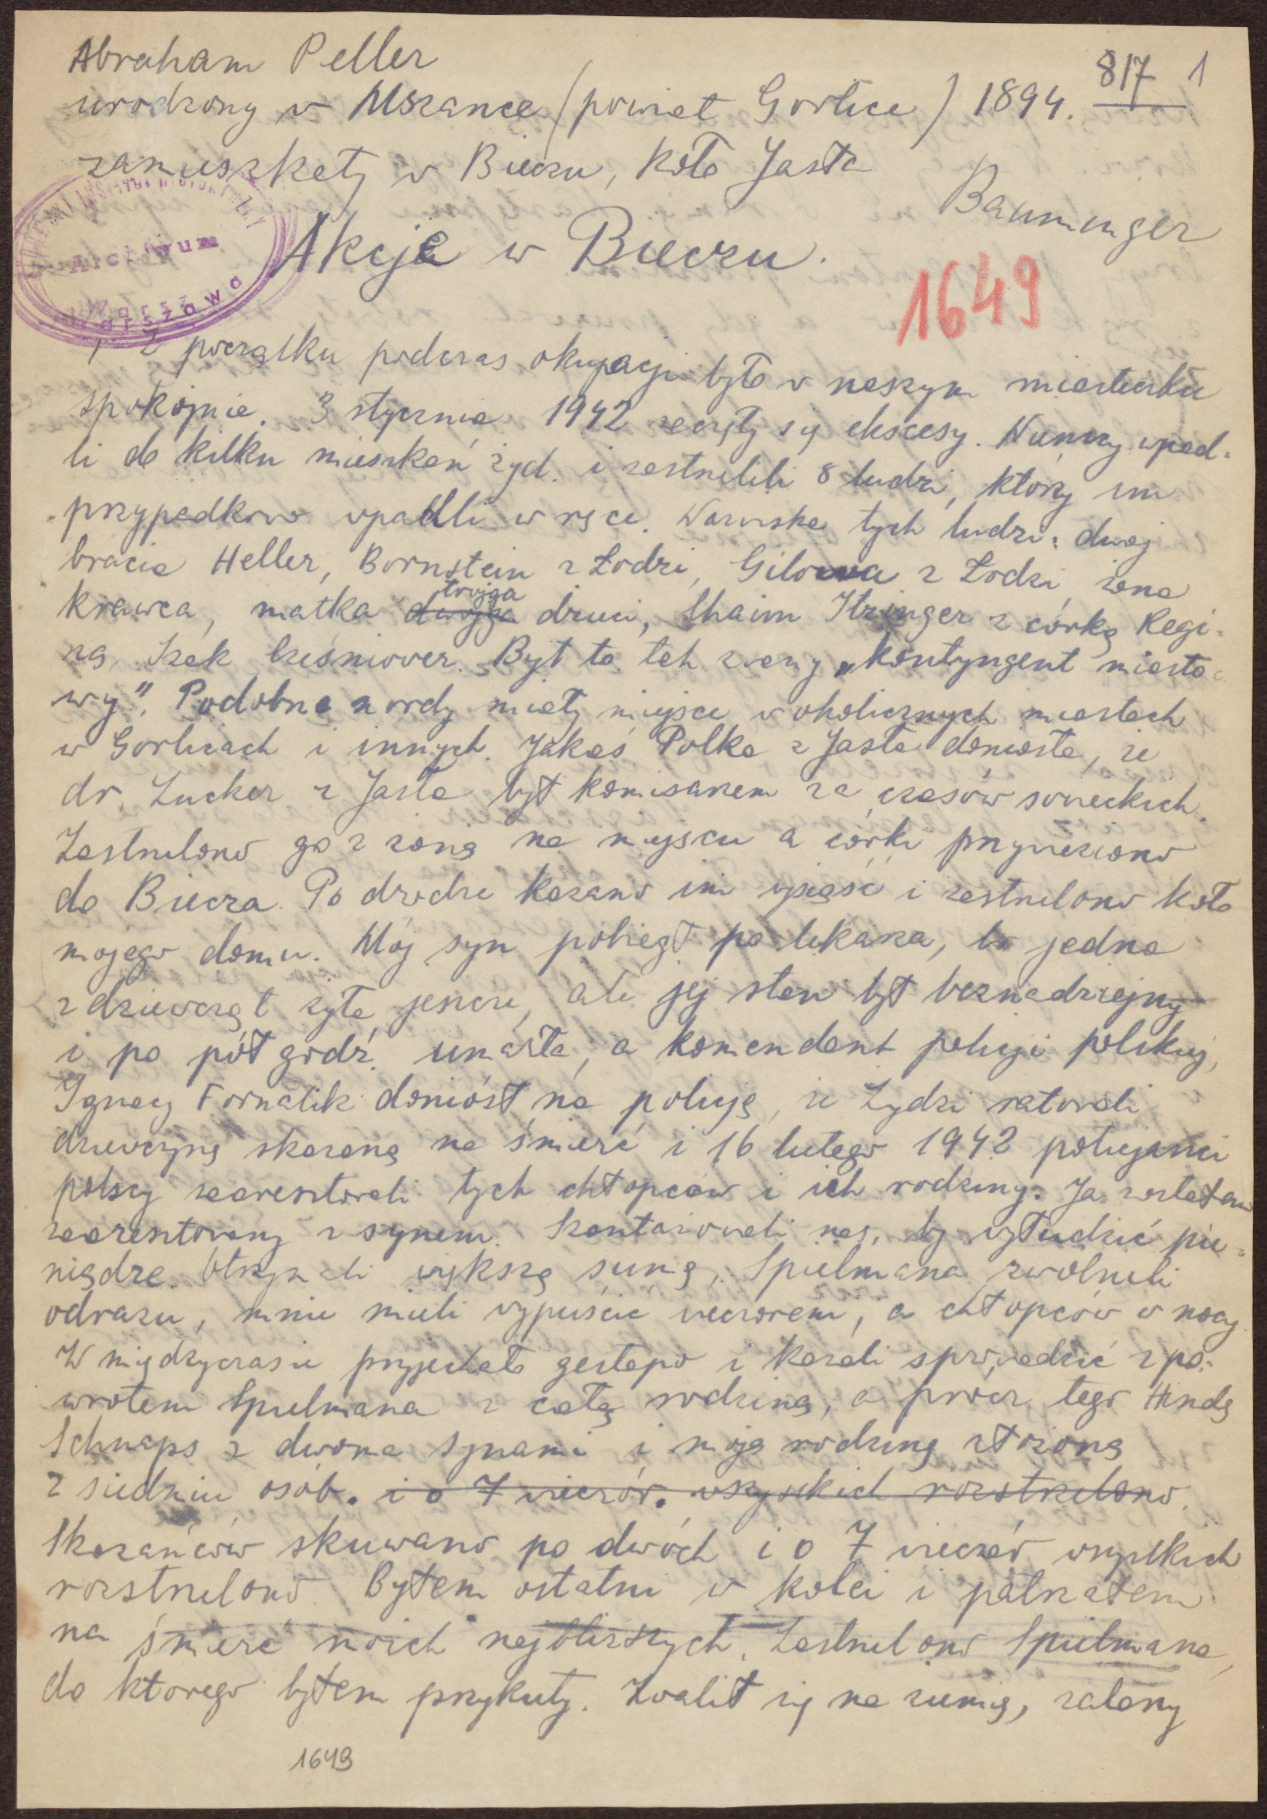 Abraham Peller
817 1
urodzony w Mszance (powiat Gorlice) 1894.
zamieszkały w Bieczu, koło Jasła
Bauminger
Archiwum
Warszawa
Akcja w Bieczu.
1649
Z początku podczas okupacji było w naszym miasteczku
spokojnie. 3 stycznia 1942 zaczęły się ekscesy. Niemcy wpad-
li do kilku mieszkań żyd. i zastrzelili 8 ludzi, którzy im
przypadkowo wpadli w ręce. Nazwiska tych ludzi: dwaj
bracia Heller, Bornstein z Łodzi, z Łodzi, żona
krawca, matka dwojga trojga dzieci, Chaim Itzinger z córką Regi-
ną, Izak. Był to tak zwany "kontyngent miasto-
wy". Podobne mordy miały miejsce w okolicznych miastach
w Gorlicach i innych. Jakaś Polka z Jasła doniosła, że
dr. Zucker z Jasła był komisarzem za czasów sowieckich.
Zastrzelono go z żoną na miejscu a córki przywieziono
do Biecza. Po drodze kazano im wysiąść i zastrzelono koło
mojego domu. Mój syn pobiegł po lekarza, bo jedna
z dziewcząt żyła jeszcze, ale jej stan był beznadziejny
i po pół godz. umarła, a komendant policji polskiej,
Ignacy Fornalik doniósł na policję, że Żydzi ratowali
dziewczynę skazaną na śmierć i 16 lutego 1942 policjanci
polscy zaaresztowali tych chłopców i ich rodziny. Ja zostałem
zaaresztowany z synem. Szantażowali nas, by wyłudzić pie-
niądze. Otrzymali większą sumę, Spielmana zwolnili
odrazu, mnie mieli wypuścić wieczorem, a chłopców w nocy.
W międzyczasie przyjechało gestapo i kazali sprowadzić z po-
wrotem Spielmana z całą rodziną, a prócz tego Hindę
Schnaps z dwoma synami i moją rodzinę złożoną
z siedmiu osób. i o 7 wieczór. wszystkich rozstrzelono.
Skazańców skuwano po dwóch i o 7 wieczór wszystkich
rozstrzelono. Byłem ostatni w kolei i patrzałem
na śmierć moich najbliższych. Zastrzelono Spielmana,
do którego byłem przykuty. Zwalił się na ziemię, zalany
1649